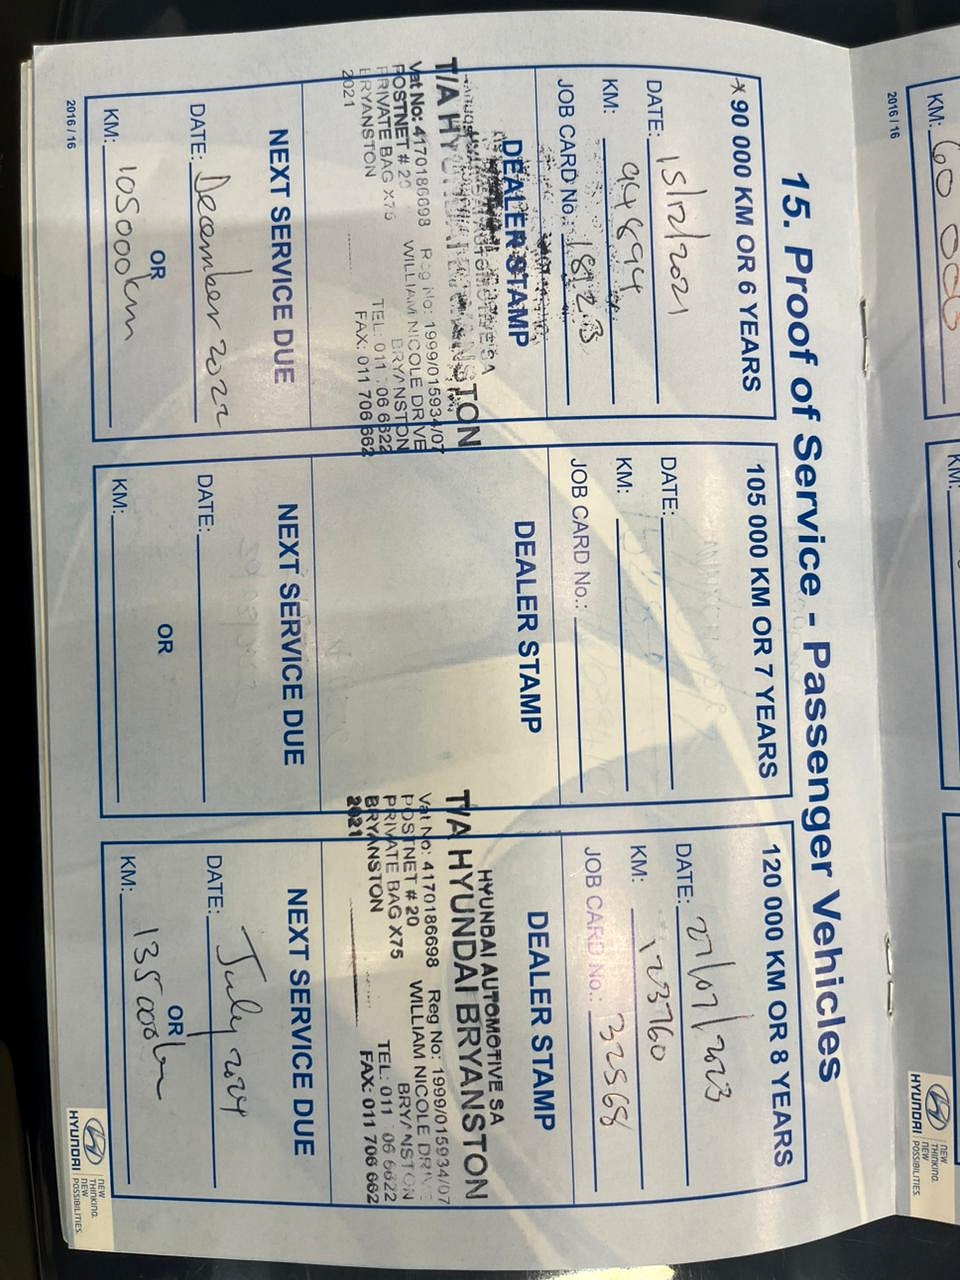 15. Proof of Service - Passenger Vehicles
* 90 000 KM OR 6 YEARS
DATE: 15/12/2021
KM: 94894
JOB CARD No.:
DEALER STAMP
T/A HYUNDAI BRYANSTON
Vat No: 4170186698 Reg No: 1999/015934/07
POSTNET # 20 WILLIAM NICOLE DRIVE
PRIVATE BAG X75 BRYANSTON
BRYANSTON TEL: 011 706 6622
2021 FAX: 011 706 662
NEXT SERVICE DUE
DATE: December 2022
OR
KM: 105000km
2016 / 16
105 000 KM OR 7 YEARS
DATE:
KM:
JOB CARD No.:
DEALER STAMP
NEXT SERVICE DUE
DATE:
OR
KM:
120 000 KM OR 8 YEARS
DATE: 27/07/2023
KM: 123760
JOB CARD No.: 332568
DEALER STAMP
HYUNDAI AUTOMOTIVE SA
T/A HYUNDAI BRYANSTON
Vat No: 4170186698 Reg No: 1999/015934/07
POSTNET # 20 WILLIAM NICOLE DRIVE
PRIVATE BAG X75 BRYANSTON
BRYANSTON TEL: 011 06 6622
2021 FAX: 011 706 662
NEXT SERVICE DUE
DATE: July 2024
OR
KM: 135000km
HYUNDAI
NEW
THINKING.
NEW
POSSIBILITIES.
KM: 60 000
2016 / 16
KM:
HYUNDAI
NEW
THINKING.
NEW
POSSIBILITIES.